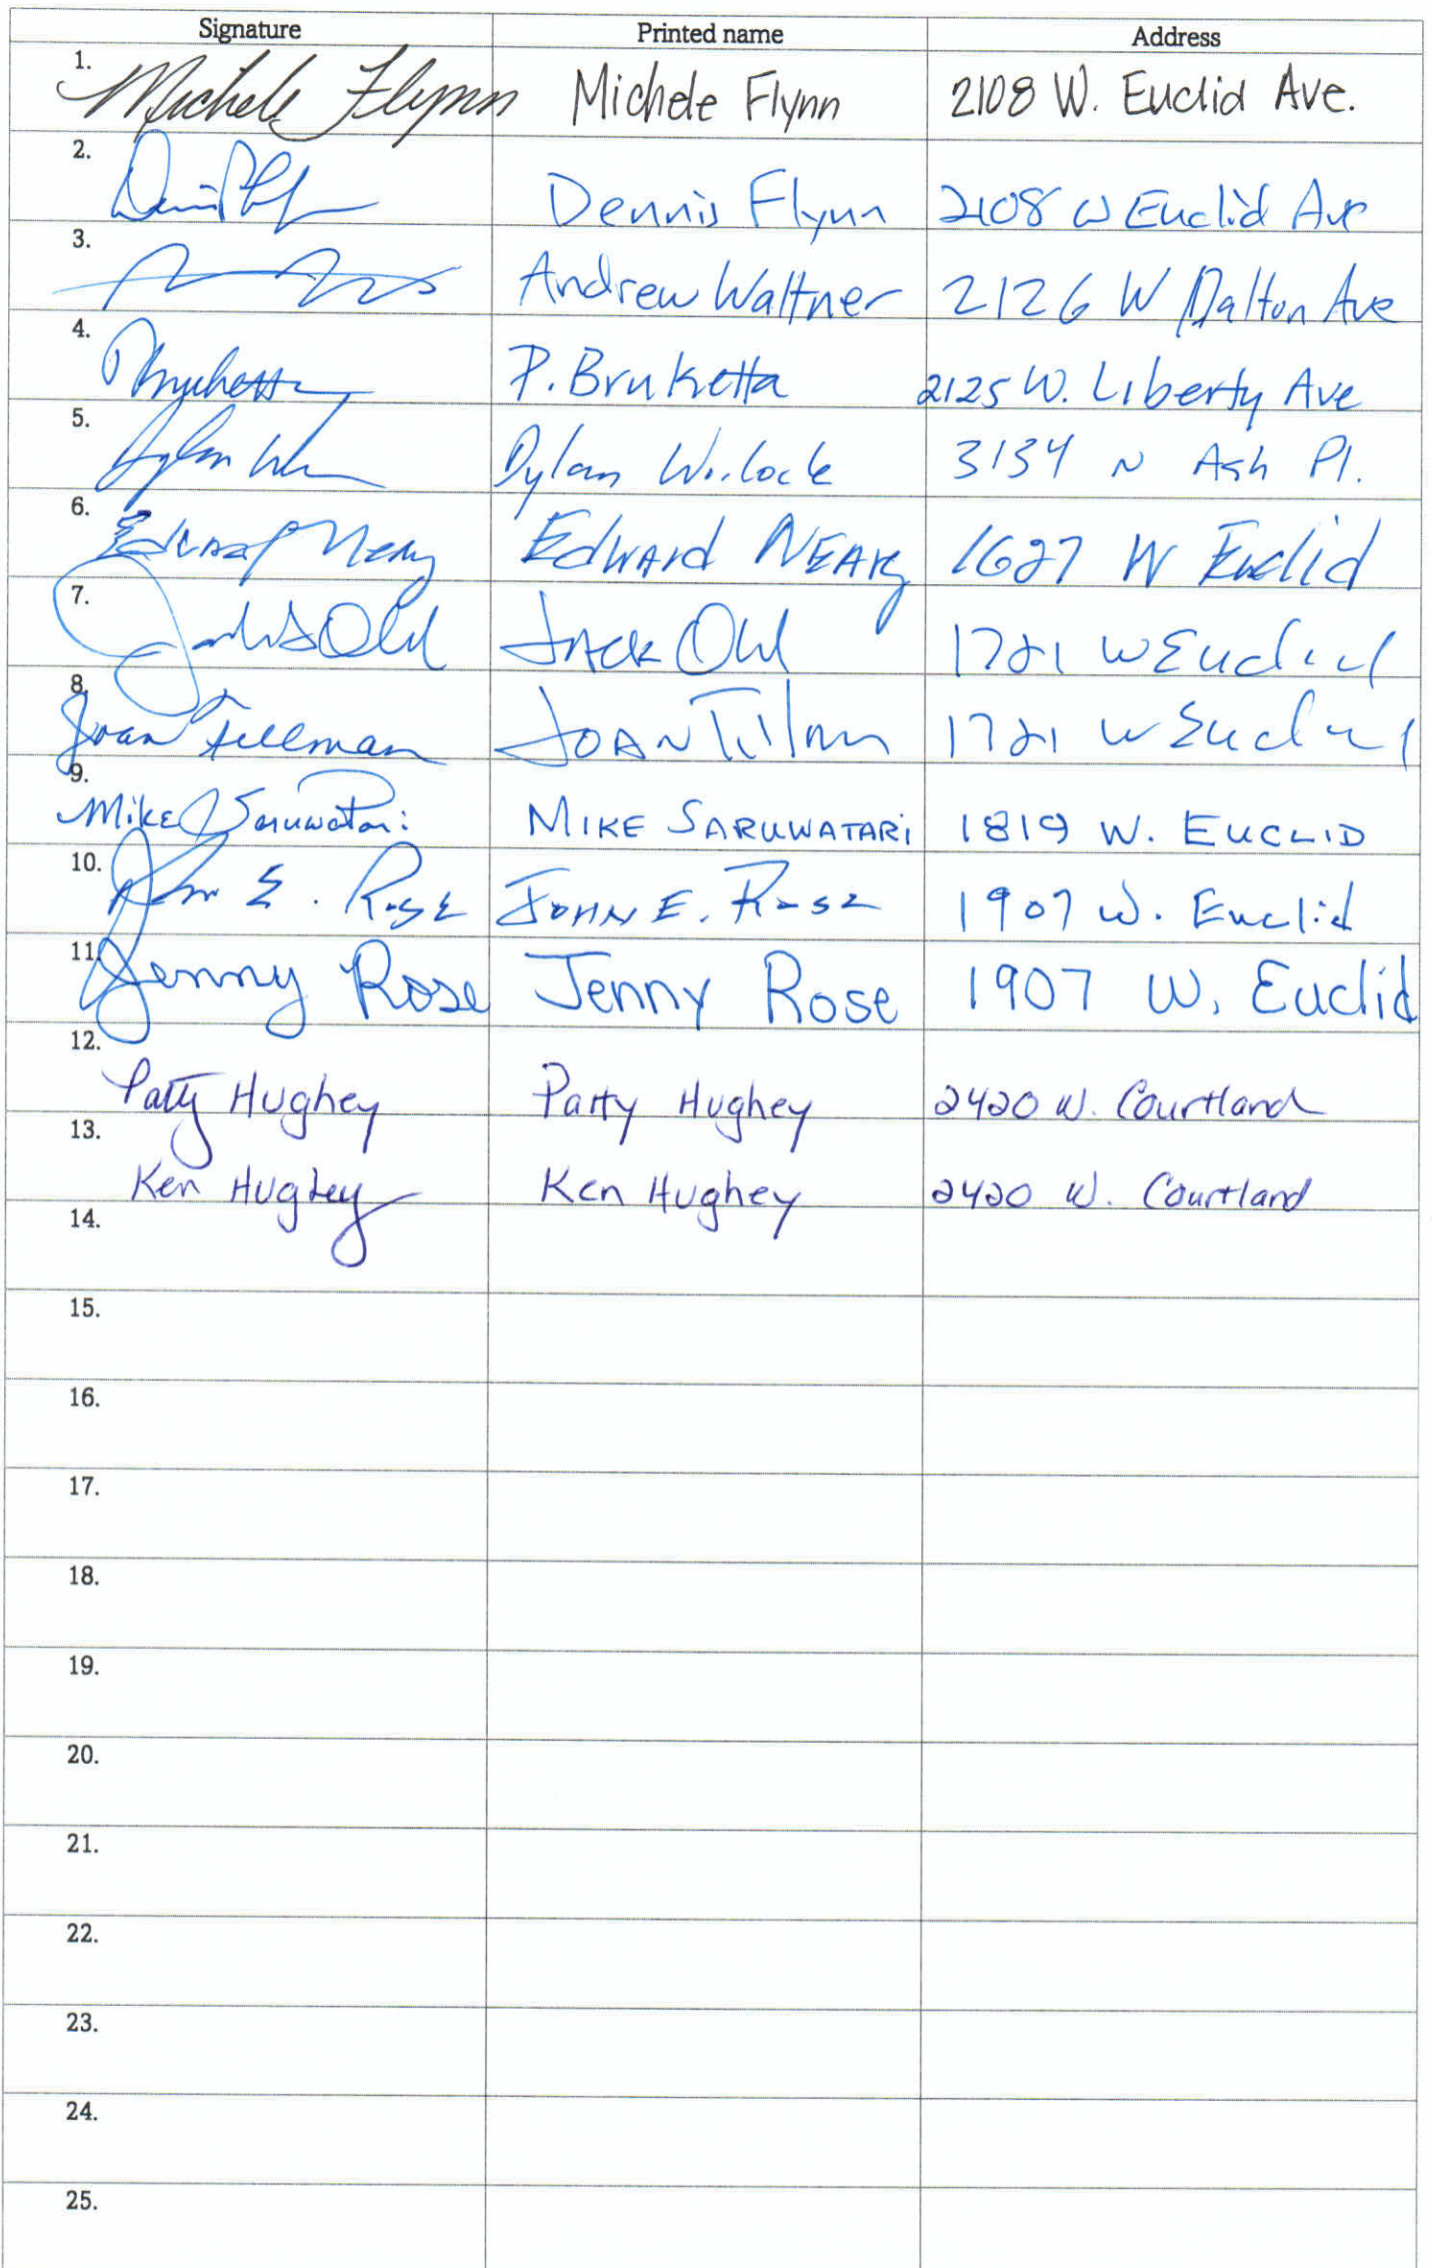 Signature Printed name Address
1. Michele Flynn Michele Flynn 2108 W. Euclid Ave.
2. Dennis Flynn 2108 W Euclid Ave
3. Andrew Waltner 2126 W Dalton Ave
4. P. Bruketta 2125 W. Liberty Ave
5. Dylan 3134 N Ash Pl.
6. Edward Neary Edward NEARY 1627 W Euclid
7. Jack Ohl 1721 W Euclid
8. Joan Tillman JOAN 1721 W Euclid
9. Mike Saruwatari MIKE SARUWATARi 1819 W. EUCLID
10. John E. Rose JOHN E. Rose 1907 W. Euclid
11. Jenny Rose Jenny Rose 1907 W. Euclid
12. Patty Hughey Patty Hughey 2420 W. Courtland
13. Ken Hughey Ken Hughey 2420 W. Courtland
14.
15.
16.
17.
18.
19.
20.
21.
22.
23.
24.
25.